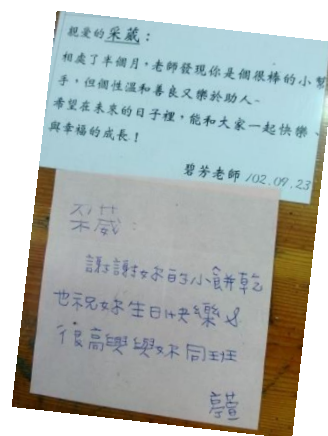 親愛的采葳：
相處了半個月，老師發現你是個很棒的小幫
手，但個性溫和善良又樂於助人。
希望在未來的日子裡，能和大家一起快樂、
與幸福的成長！
碧芳老師 102.09.23
采葳：
謝謝妳的小餅乾
也祝妳生日快樂
很高興與妳同班